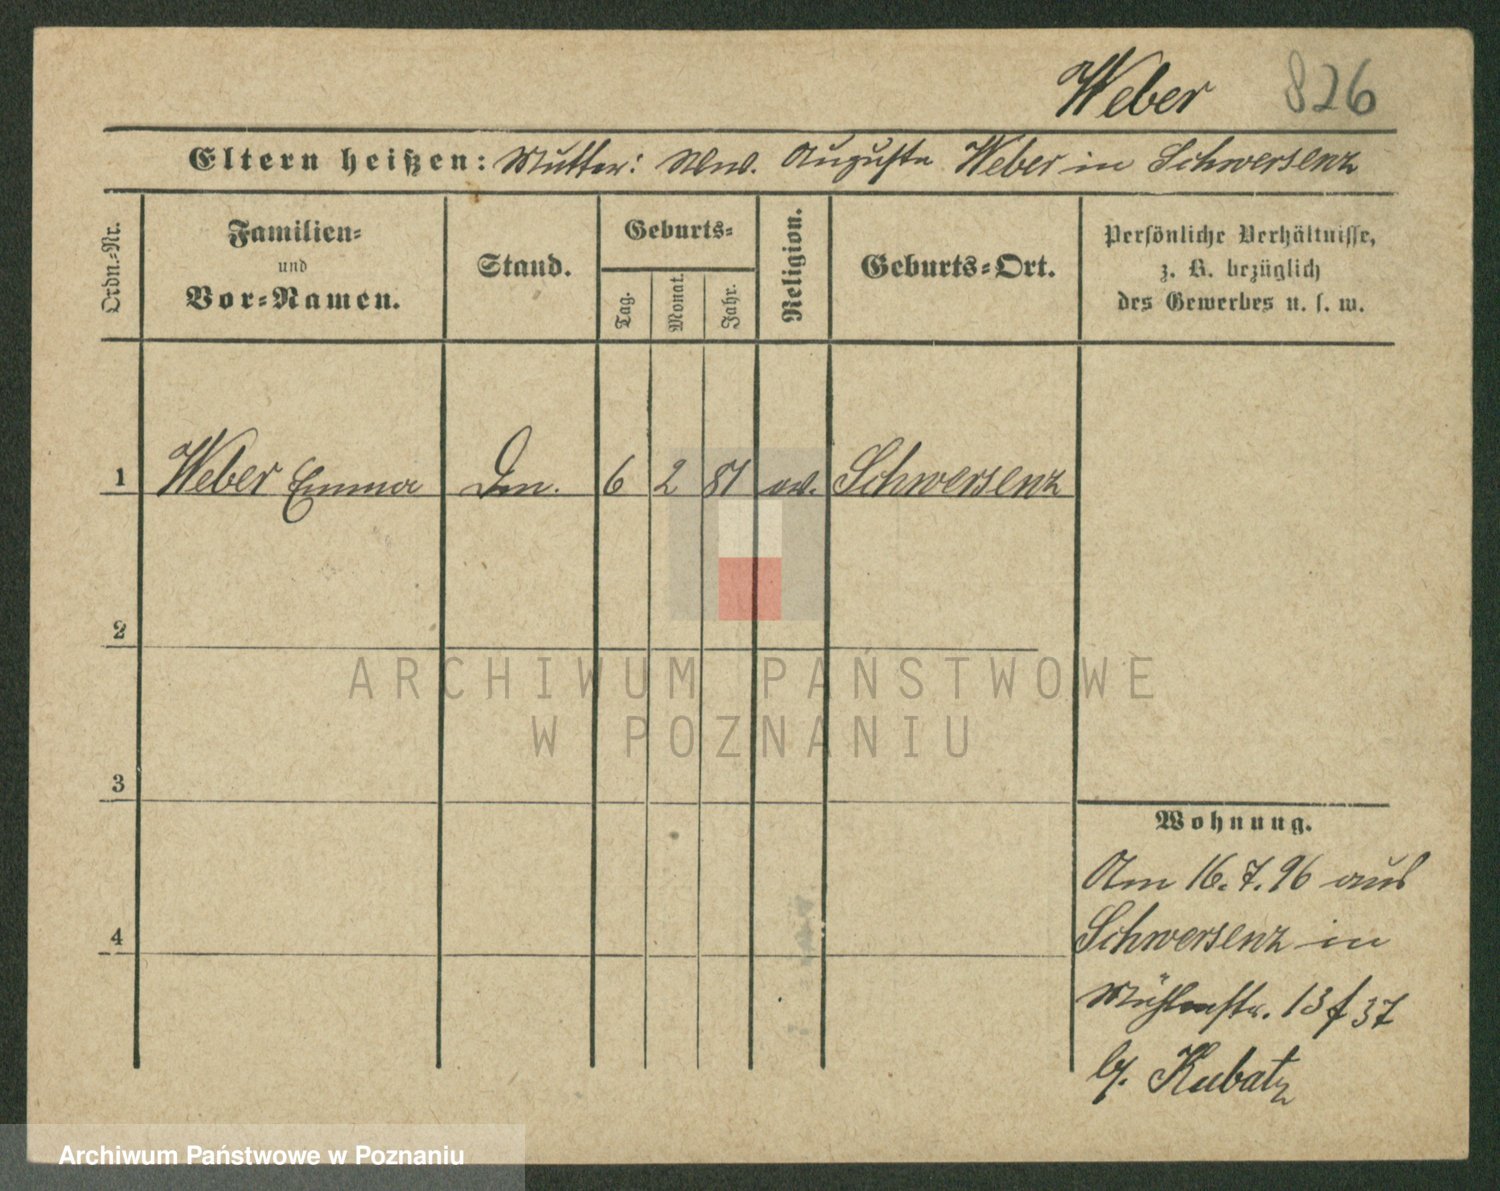 Weber 826
Eltern heißen: Mutter: Ww. Auguste Weber in Schwersenz
Ordn.-Nr.
Familien-
und
Vor-Namen.
Stand.
Geburts-
Tag.
Monat.
Jahr.
Religion.
Geburts-Ort.
Persönliche Verhältnisse,
z. B. bezüglich
des Gewerbes u. s. w.
1 Weber Emma 6 2 81 ev. Schwersenz
2
3
4
Wohnung.
Am 16.7.96 aus
Schwersenz in
Mühlenstr. 13
b/. Kubatz
ARCHIWUM PAŃSTWOWE
W POZNANIU
Archiwum Państwowe w Poznaniu